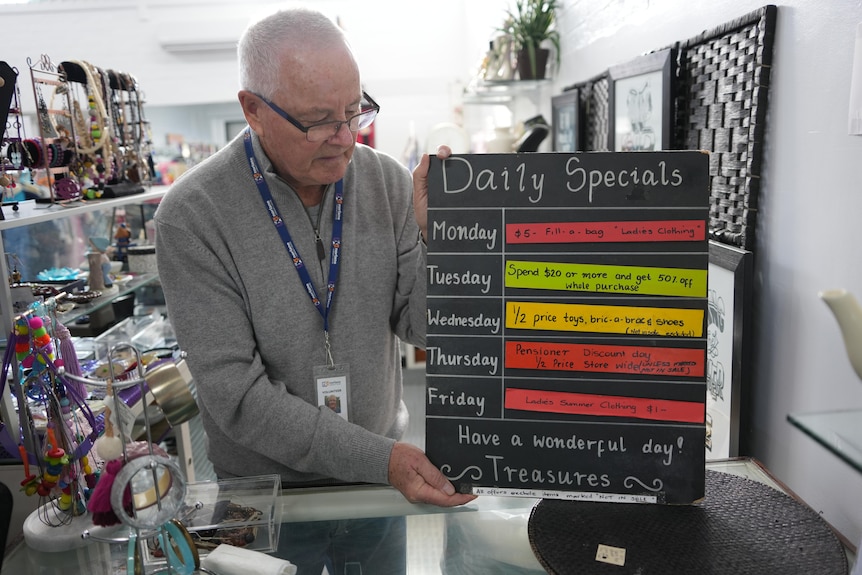 Daily Specials
Monday
$5- Fill-a-bag "Ladies Clothing"
Tuesday
Spend $20 or more and get 50% off
whole purchase
Wednesday
1/2 price toys, bric-a-brac & shoes
Thursday
Pensioner Discount day
1/2 Price Store wide (UNLESS MARKED
NOT IN SALE)
Friday
Ladies Summer Clothing $1-
Have a wonderful day!
Treasures
All offers exclude items marked "NOT IN SALE"
VOLUNTEER